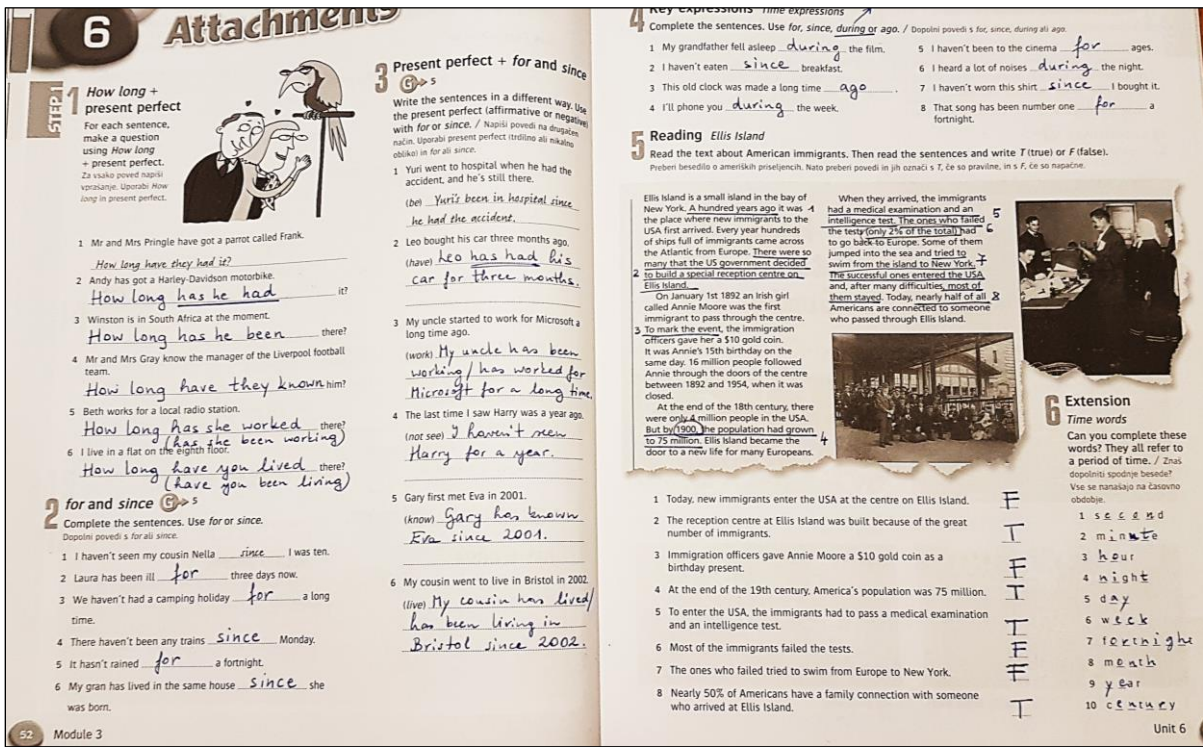 6 Attachments
STEP 1
1 How long +
present perfect
For each sentence,
make a question
using How long
+ present perfect.
Za vsako poved napiši
vprašanje. Uporabi How
long in present perfect.
1 Mr and Mrs Pringle have got a parrot called Frank.
How long have they had it?
2 Andy has got a Harley-Davidson motorbike.
How long has he had it?
3 Winston is in South Africa at the moment.
How long has he been there?
4 Mr and Mrs Gray know the manager of the Liverpool football
team.
How long have they known him?
5 Beth works for a local radio station.
How long has she worked there?
(has she been working)
6 I live in a flat on the eighth floor.
How long have you lived there?
(have you been living)
2 for and since G 5
Complete the sentences. Use for or since.
Dopolni povedi s for ali since.
1 I haven't seen my cousin Nella since I was ten.
2 Laura has been ill for three days now.
3 We haven't had a camping holiday for a long
time.
4 There haven't been any trains since Monday.
5 It hasn't rained for a fortnight.
6 My gran has lived in the same house since she
was born.
52 Module 3
3 Present perfect + for and since
G 5
Write the sentences in a different way. Use
the present perfect (affirmative or negative)
with for or since. / Napiši povedi na drugačen
način. Uporabi present perfect (trdilno ali nikalno
obliko) in for ali since.
1 Yuri went to hospital when he had the
accident, and he's still there.
(be) Yuri's been in hospital since
he had the accident.
2 Leo bought his car three months ago.
(have) Leo has had his
car for three months.
3 My uncle started to work for Microsoft a
long time ago.
(work) My uncle has been
working / has worked for
Microsoft for a long time.
4 The last time I saw Harry was a year ago.
(not see) I haven't seen
Harry for a year.
5 Gary first met Eva in 2001.
(know) Gary has known
Eva since 2001.
6 My cousin went to live in Bristol in 2002.
(live) My cousin has lived/
has been living in
Bristol since 2002.
4 Key expressions Time expressions
Complete the sentences. Use for, since, during or ago. / Dopolni povedi s for, since, during ali ago.
1 My grandfather fell asleep during the film.
2 I haven't eaten since breakfast.
3 This old clock was made a long time ago.
4 I'll phone you during the week.
5 I haven't been to the cinema for ages.
6 I heard a lot of noises during the night.
7 I haven't worn this shirt since I bought it.
8 That song has been number one for a
fortnight.
5 Reading Ellis Island
Read the text about American immigrants. Then read the sentences and write T (true) or F (false).
Preberi besedilo o ameriških priseljencih. Nato preberi povedi in jih označi s T, če so pravilne, in s F, če so napačne.
Ellis Island is a small island in the bay of
New York. A hundred years ago it was 1
the place where new immigrants to the
USA first arrived. Every year hundreds
of ships full of immigrants came across
the Atlantic from Europe. There were so
many that the US government decided
2 to build a special reception centre on
Ellis Island.
On January 1st 1892 an Irish girl
called Annie Moore was the first
immigrant to pass through the centre.
3 To mark the event, the immigration
officers gave her a $10 gold coin.
It was Annie's 15th birthday on the
same day. 16 million people followed
Annie through the doors of the centre
between 1892 and 1954, when it was
closed.
At the end of the 18th century, there
were only 4 million people in the USA.
But by 1900, the population had grown
to 75 million. Ellis Island became the 4
door to a new life for many Europeans.
When they arrived, the immigrants
had a medical examination and an 5
intelligence test. The ones who failed
the tests (only 2% of the total) had 6
to go back to Europe. Some of them
jumped into the sea and tried to
swim from the island to New York. 7
The successful ones entered the USA
and, after many difficulties, most of
them stayed. Today, nearly half of all 8
Americans are connected to someone
who passed through Ellis Island.
1 Today, new immigrants enter the USA at the centre on Ellis Island. F
2 The reception centre at Ellis Island was built because of the great
number of immigrants. T
3 Immigration officers gave Annie Moore a $10 gold coin as a
birthday present. F
4 At the end of the 19th century, America's population was 75 million. T
5 To enter the USA, the immigrants had to pass a medical examination
and an intelligence test. T
6 Most of the immigrants failed the tests. F
7 The ones who failed tried to swim from Europe to New York. F
8 Nearly 50% of Americans have a family connection with someone
who arrived at Ellis Island. T
6 Extension
Time words
Can you complete these
words? They all refer to
a period of time. / Znaš
dopolniti spodnje besede?
Vse se nanašajo na časovno
obdobje.
1 second
2 minute
3 hour
4 night
5 day
6 week
7 fortnight
8 month
9 year
10 century
Unit 6